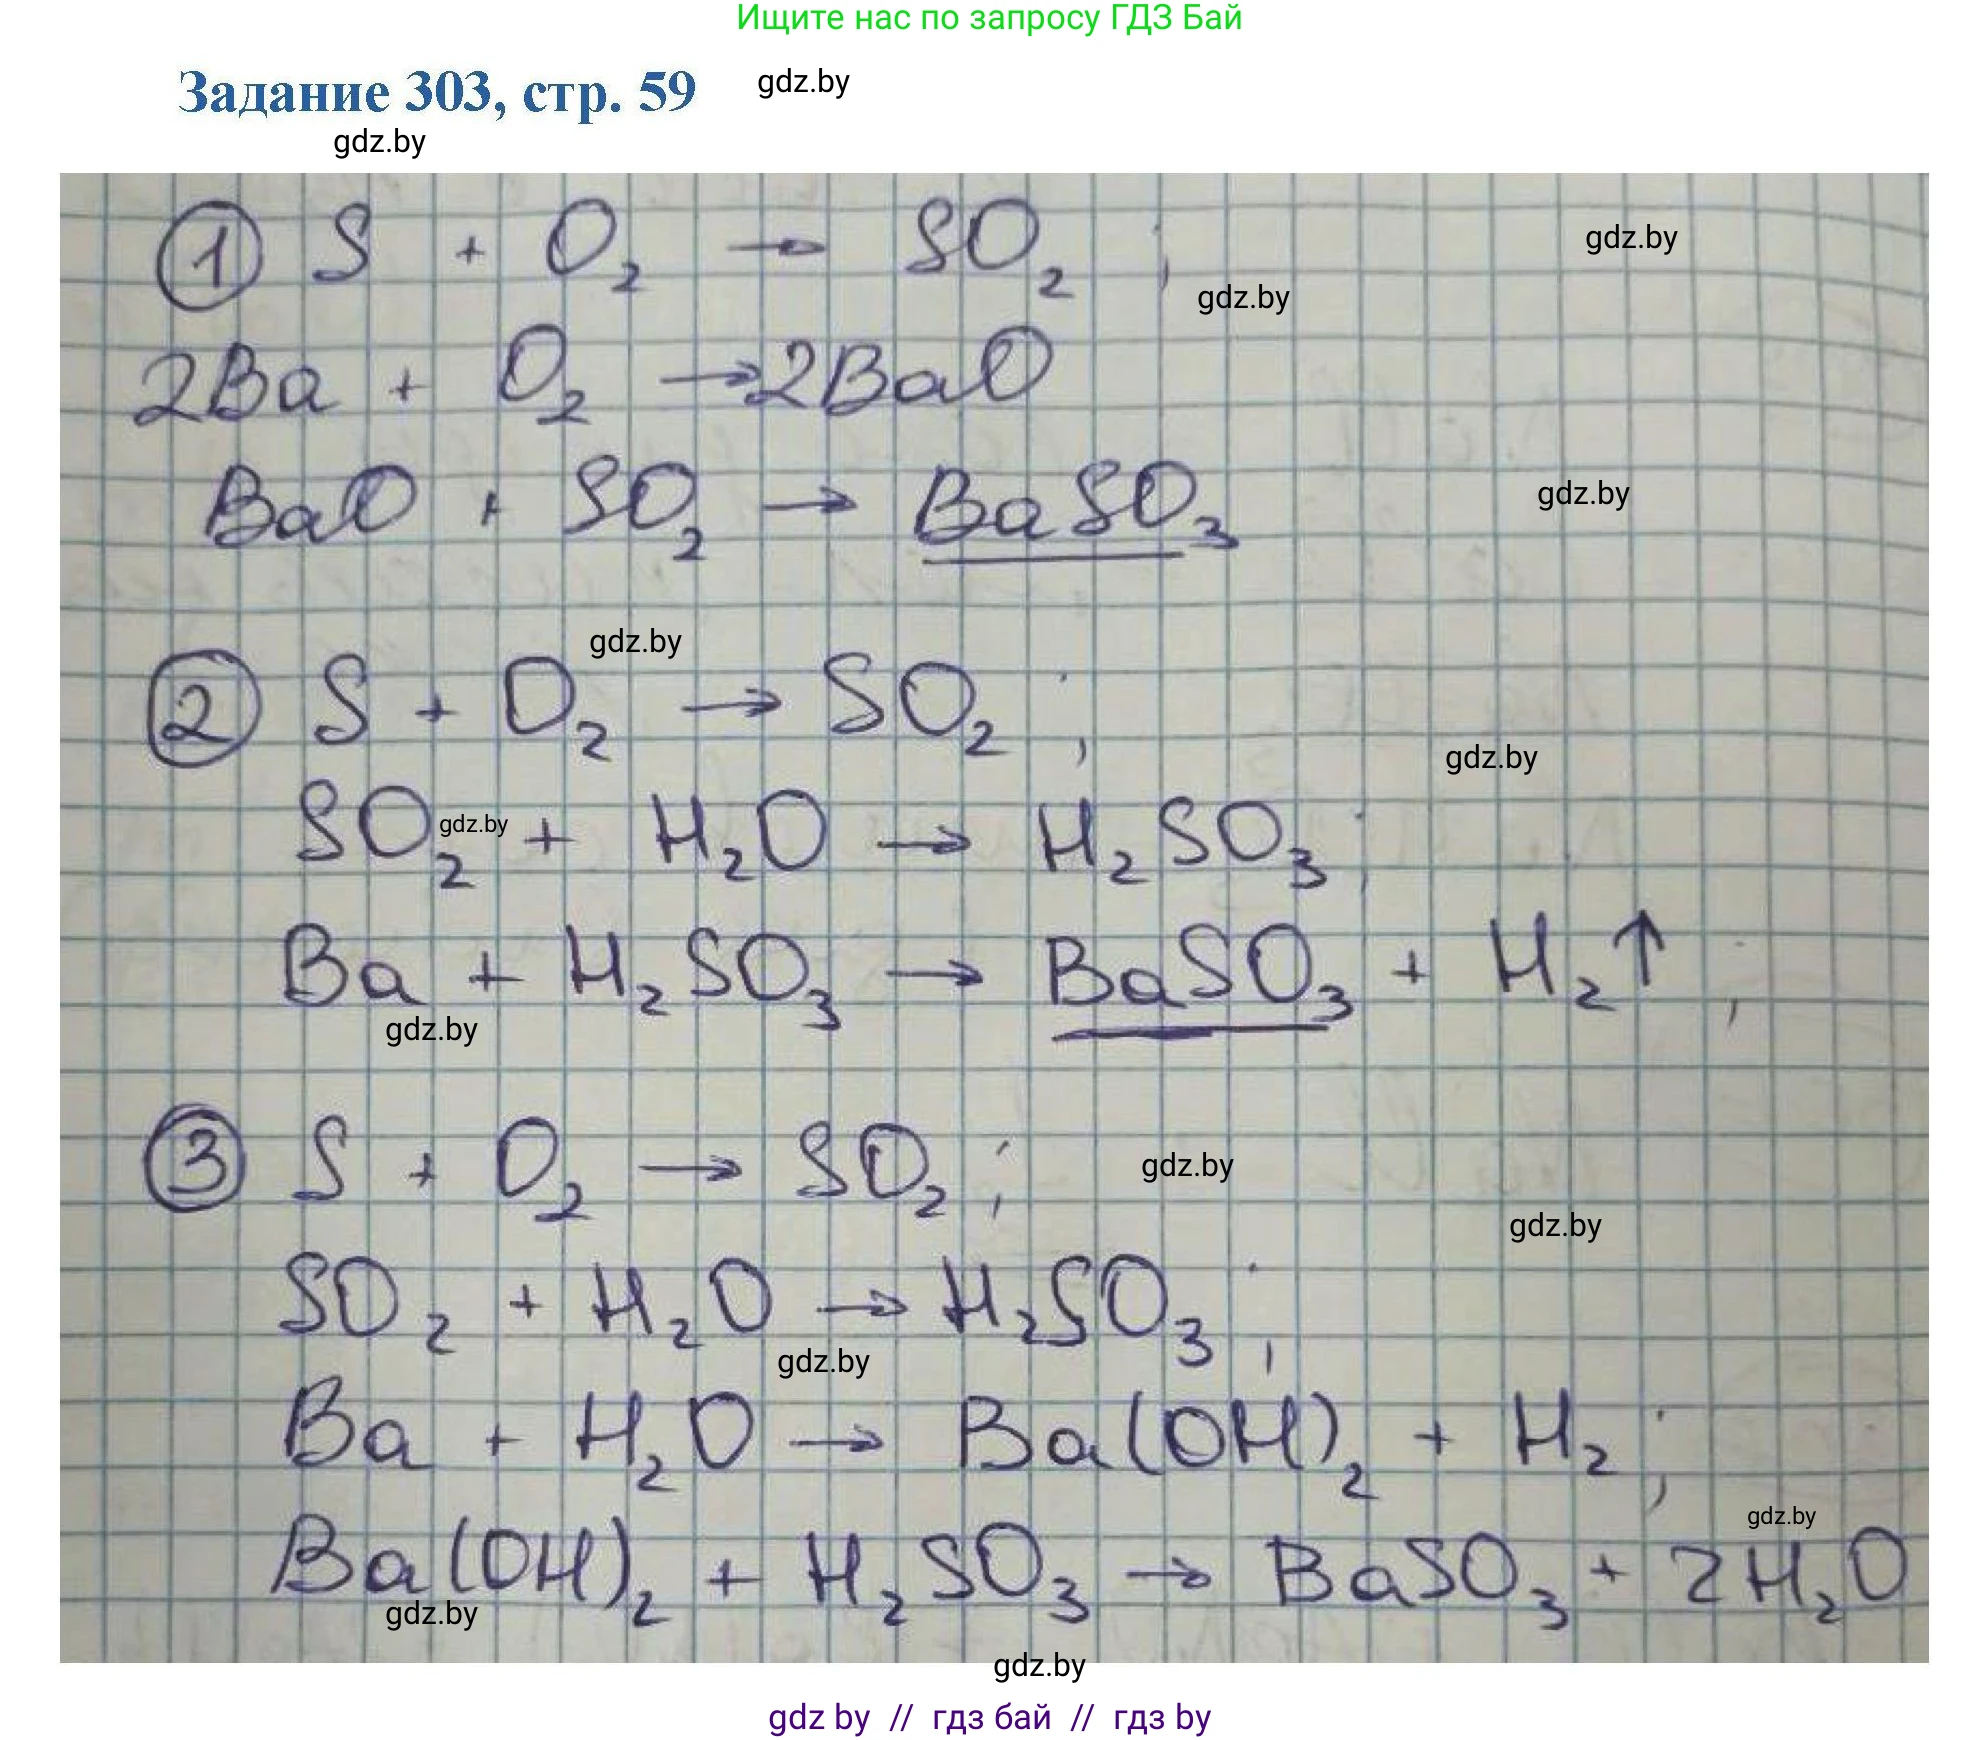 Ищите нас по запросу ГДЗ Бай
Задание 303, стр. 59
gdz.by
gdz.by
① S + O₂ → SO₂ ;
gdz.by
gdz.by
2Ba + O₂ → 2BaO
BaO + SO₂ → BaSO₃
gdz.by
gdz.by
② S + O₂ → SO₂ ;
gdz.by
SO₂ + H₂O → H₂SO₃ ;
gdz.by
Ba + H₂SO₃ → BaSO₃ + H₂↑ ;
gdz.by
③ S + O₂ → SO₂ ;
gdz.by
gdz.by
SO₂ + H₂O → H₂SO₃ ;
gdz.by
Ba + H₂O → Ba(OH)₂ + H₂ ;
gdz.by
Ba(OH)₂ + H₂SO₃ → BaSO₃ + 2H₂O
gdz.by
gdz.by
gdz by // гдз бай // гдз by